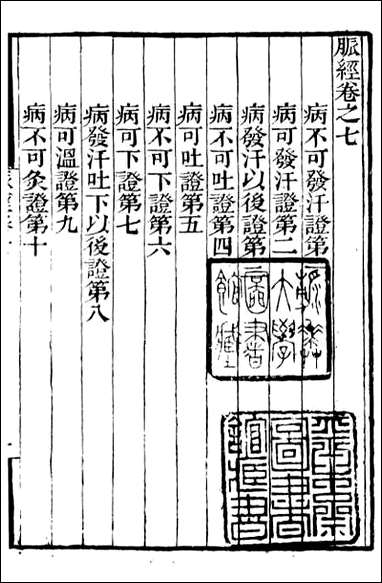 脈經卷之七
病不可發汗證第
病可發汗證第二
病發汗以後證第
病不可吐證第四
病可吐證第五
病不可下證第六
病可下證第七
病發汗吐下以後證第八
病可溫證第九
病不可灸證第十
大學
圖書
館藏
圖書